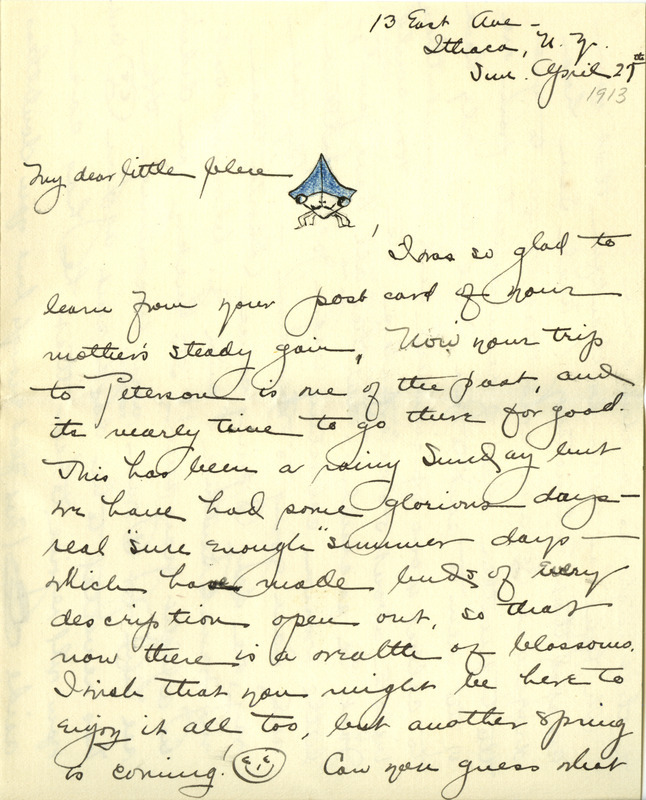 13 East Ave -
Ithaca, N. Y.
Sun. April 27th
1913
My dear little
,
I was so glad to
learn from your post card of your
mother's steady gain. Now your trip
to Peterson is one of the past, and
its nearly time to go there for good.
This has been a rainy Sunday but
we have had some glorious days -
real "sure enough" summer days -
which have made buds of every
description open out, so that
now there is a wealth of blossoms.
I wish that you might be here to
enjoy it all too, but another spring
is coming! Can you guess what